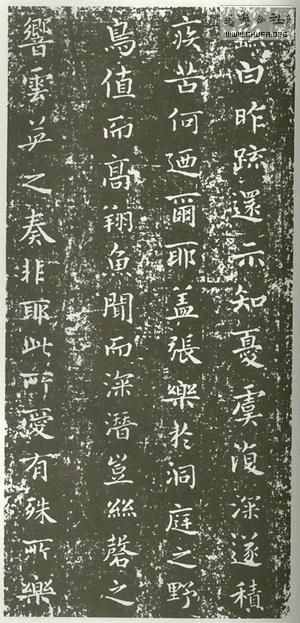 白昨疏還示知憂虞復深遂積
疾苦何迺爾耶蓋張樂於洞庭之野
鳥值而高翔魚聞而深潛豈絲磬之
響雲英之奏非耶此所愛有殊所樂
WWW.SHUFA.ORG